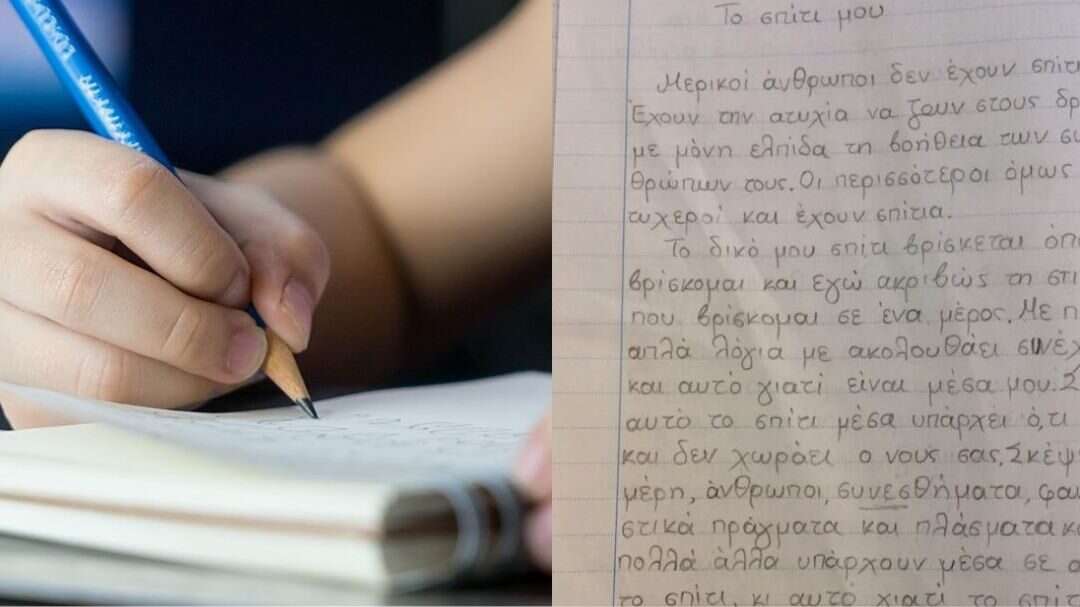 Το σπίτι μου
Μερικοί άνθρωποι δεν έχουν σπίτι
Έχουν την ατυχία να ζουν στους δρ
με μόνη ελπίδα τη βοήθεια των συ
θρώπων τους. Οι περισσότεροι όμως
τυχεροί και έχουν σπίτια.
Το δικό μου σπίτι βρίσκεται όπ
βρίσκομαι και εγώ ακριβώς τη στι
που βρίσκομαι σε ένα μέρος. Με π
απλά λόγια με ακολουθάει συνέχ
και αυτό γιατί είναι μέσα μου. Σ
αυτό το σπίτι μέσα υπάρχει ό,τι
και δεν χωράει ο νους σας. Σκέψ
μέρη, άνθρωποι, συνεσθήματα, φαν
στικά πράγματα και πλάσματα κα
πολλά άλλα υπάρχουν μέσα σε α
το σπίτι, κι αυτό γιατί το σπίτι